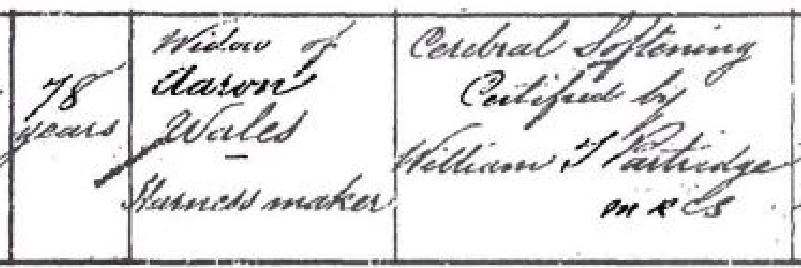 78
years
Widow of
Aaron
Wales
Harness maker
Cerebral Softening
Certified by
William T Partridge
MRCS